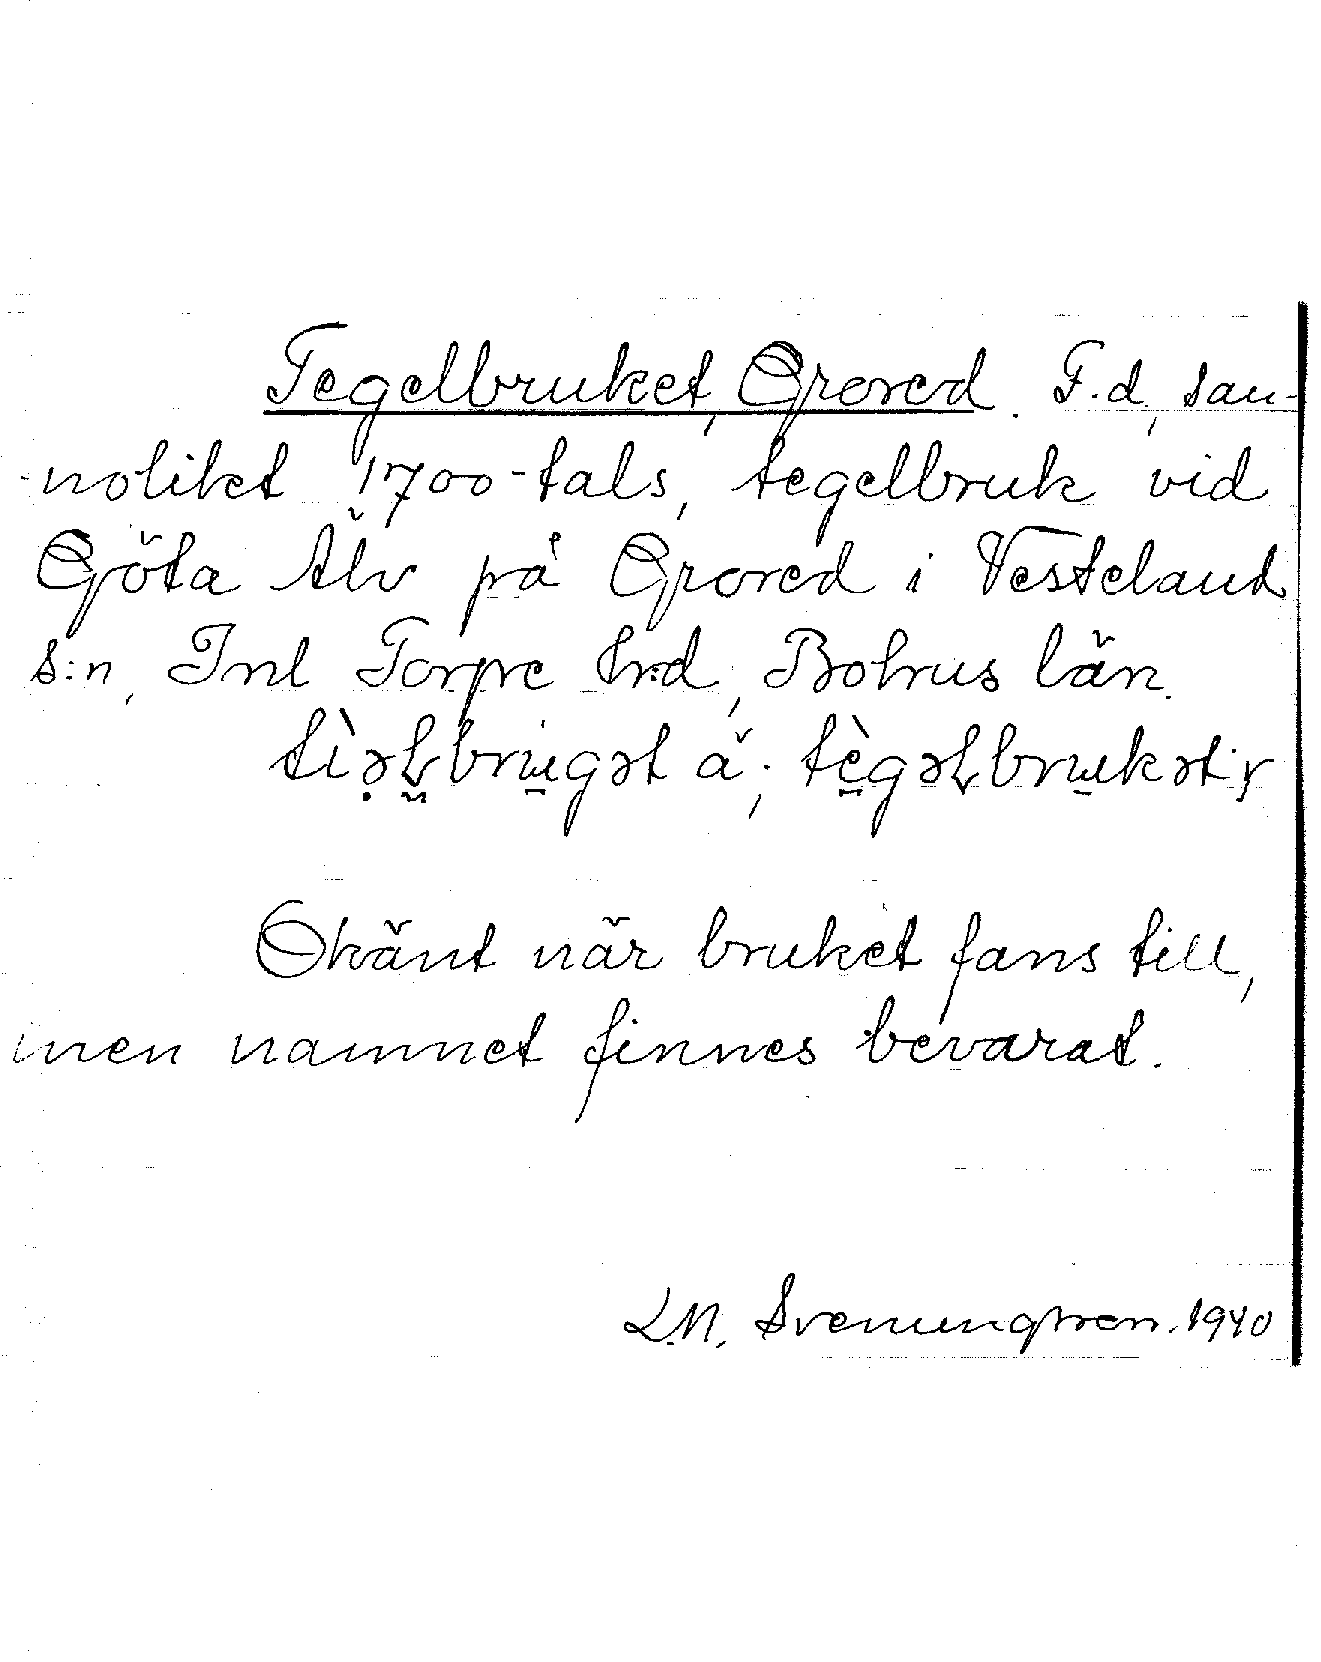 Tegelbruket, Grored. F.d., san-
nolikt 1700-tals, tegelbruk vid
Göta Älv på Grored i Vesteland
s:n, Inl Torpe hrd, Bohus län.
tìəɫbrɯgət ä; tègəɫbrukət; y
Okänt när bruket fans till,
men namnet finnes bevarat.
L.M. Svenungsson. 1940